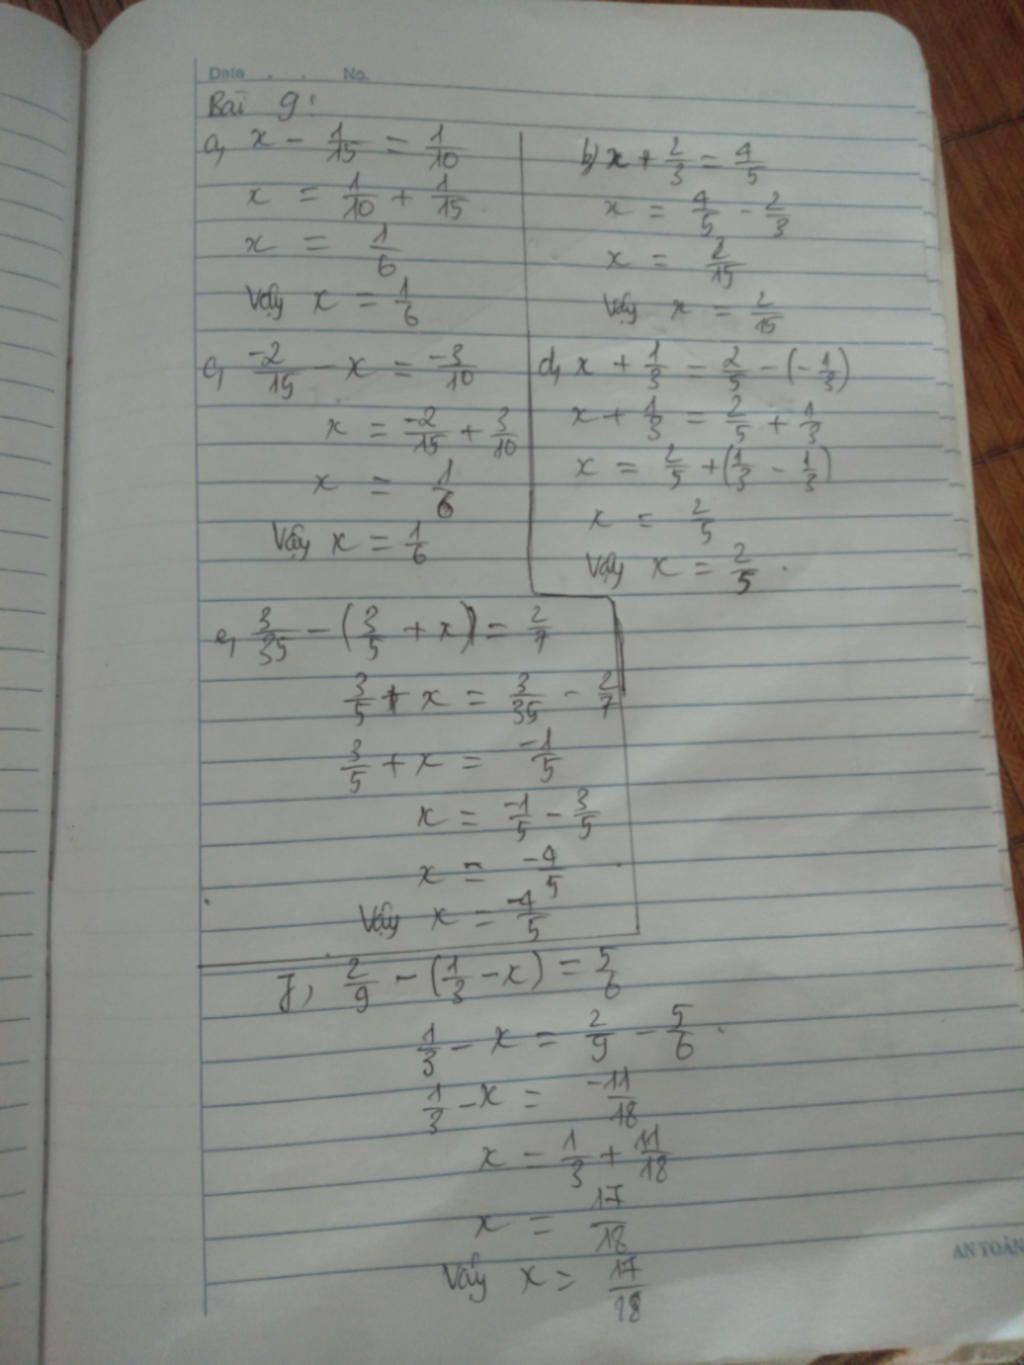 Date . . No.
Bài 9:
a, x - 1/15 = 1/10
x = 1/10 + 1/15
x = 1/6
Vậy x = 1/6
b) x + 2/3 = 4/5
x = 4/5 - 2/3
x = 2/15
Vậy x = 2/15
c, -2/15 - x = -3/10
x = -2/15 + 3/10
x = 1/6
Vậy x = 1/6
d, x + 1/3 = 2/5 - (-1/3)
x + 1/3 = 2/5 + 1/3
x = 2/5 + (1/3 - 1/3)
x = 2/5
Vậy x = 2/5.
e, 3/35 - (3/5 + x) = 2/7
3/5 + x = 3/35 - 2/7
3/5 + x = -1/5
x = -1/5 - 3/5
x = -4/5
Vậy x = -4/5
f, 2/9 - (1/3 - x) = 5/6
1/3 - x = 2/9 - 5/6.
1/3 - x = -11/18
x = 1/3 + 11/18
x = 17/18
Vậy x = 17/18
AN TOÀN